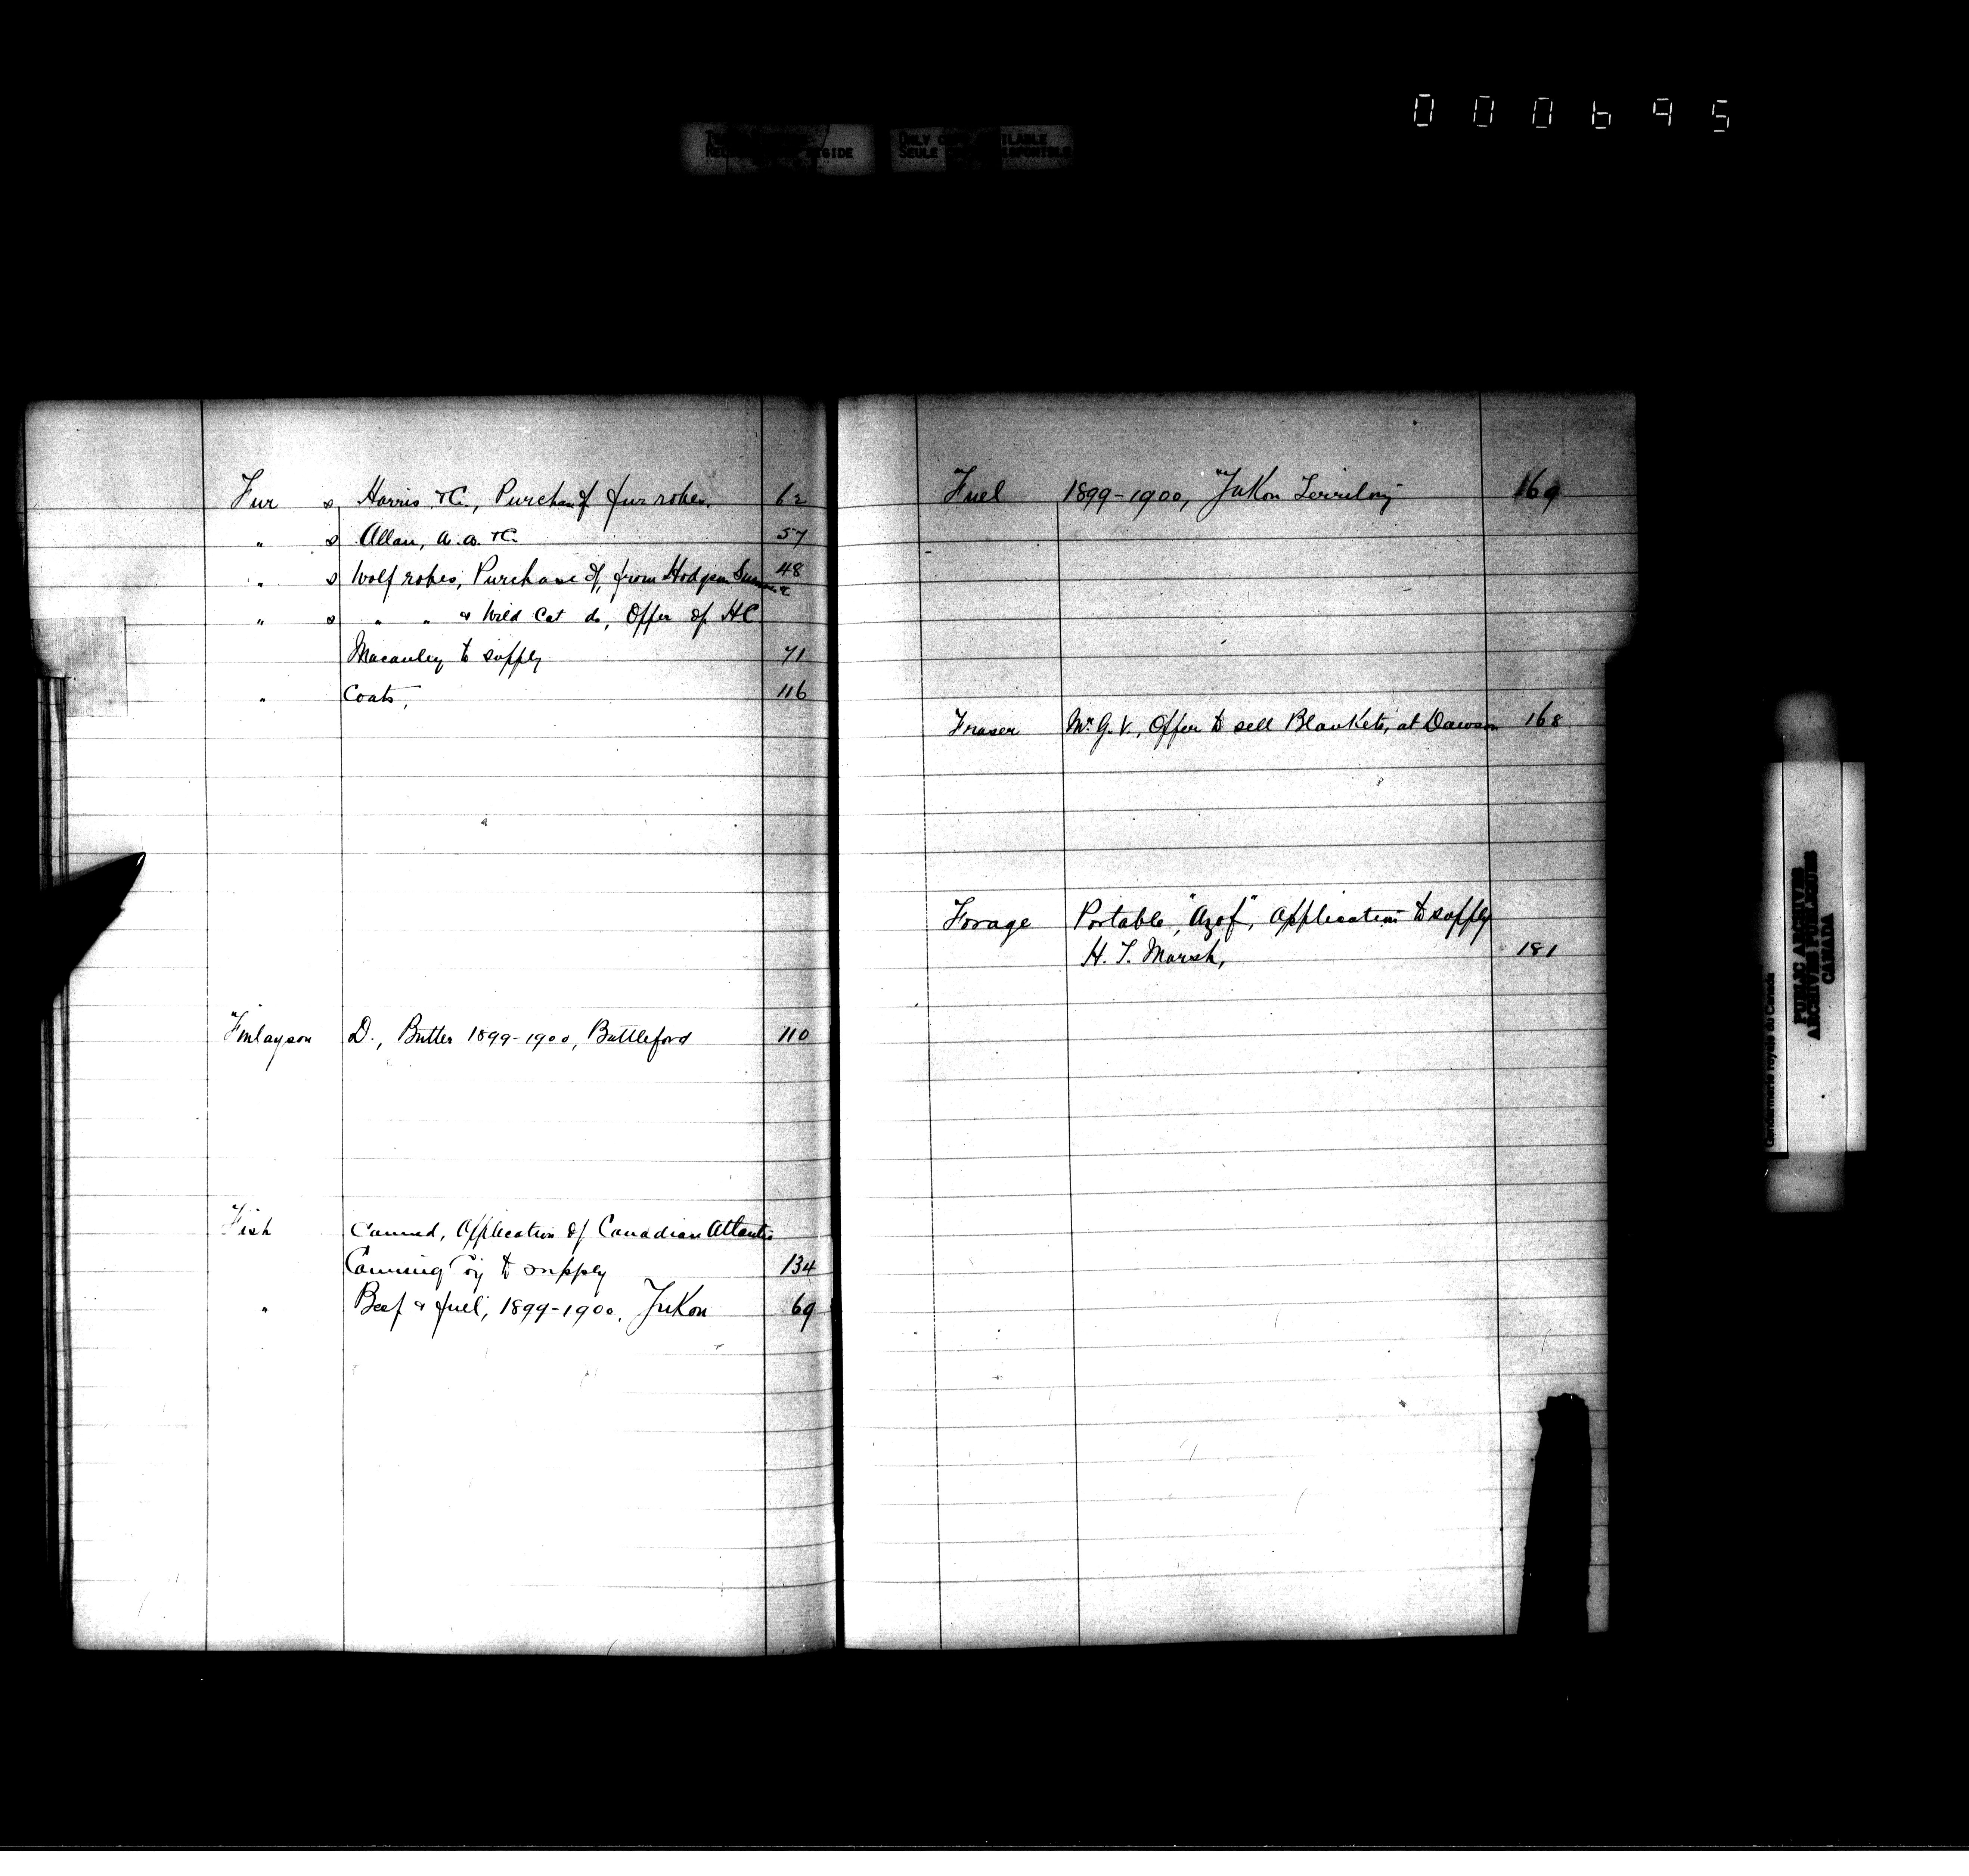 000695
ONLY COPY AVAILABLE
SEULE
Fur s Harris & C., Purchase of fur robes. 62
" s Allan, A. A. & C. 57
" s Wolf robes, Purchase of, from Hodgson Sumner 48
" s " " & Wild Cat do, Offer of H C
Macauley to supply 71
" Coats, 116
Finlayson D., Butter 1899-1900, Battleford 110
Fish Canned, Application of Canadian Atlantic
Canning Coy to supply 134
" Beef & fuel, 1899-1900, Yukon 69
Fuel 1899-1900, Yukon Territory 169
Fraser Mr. G. V., Offer to sell Blankets, at Dawson 168
Forage Portable, "Azof", Application to supply
H. T. Marsh, 181
Gendarmerie royale du Canada
PUBLIC ARCHIVES
ARCHIVES PUBLIQUES
CANADA